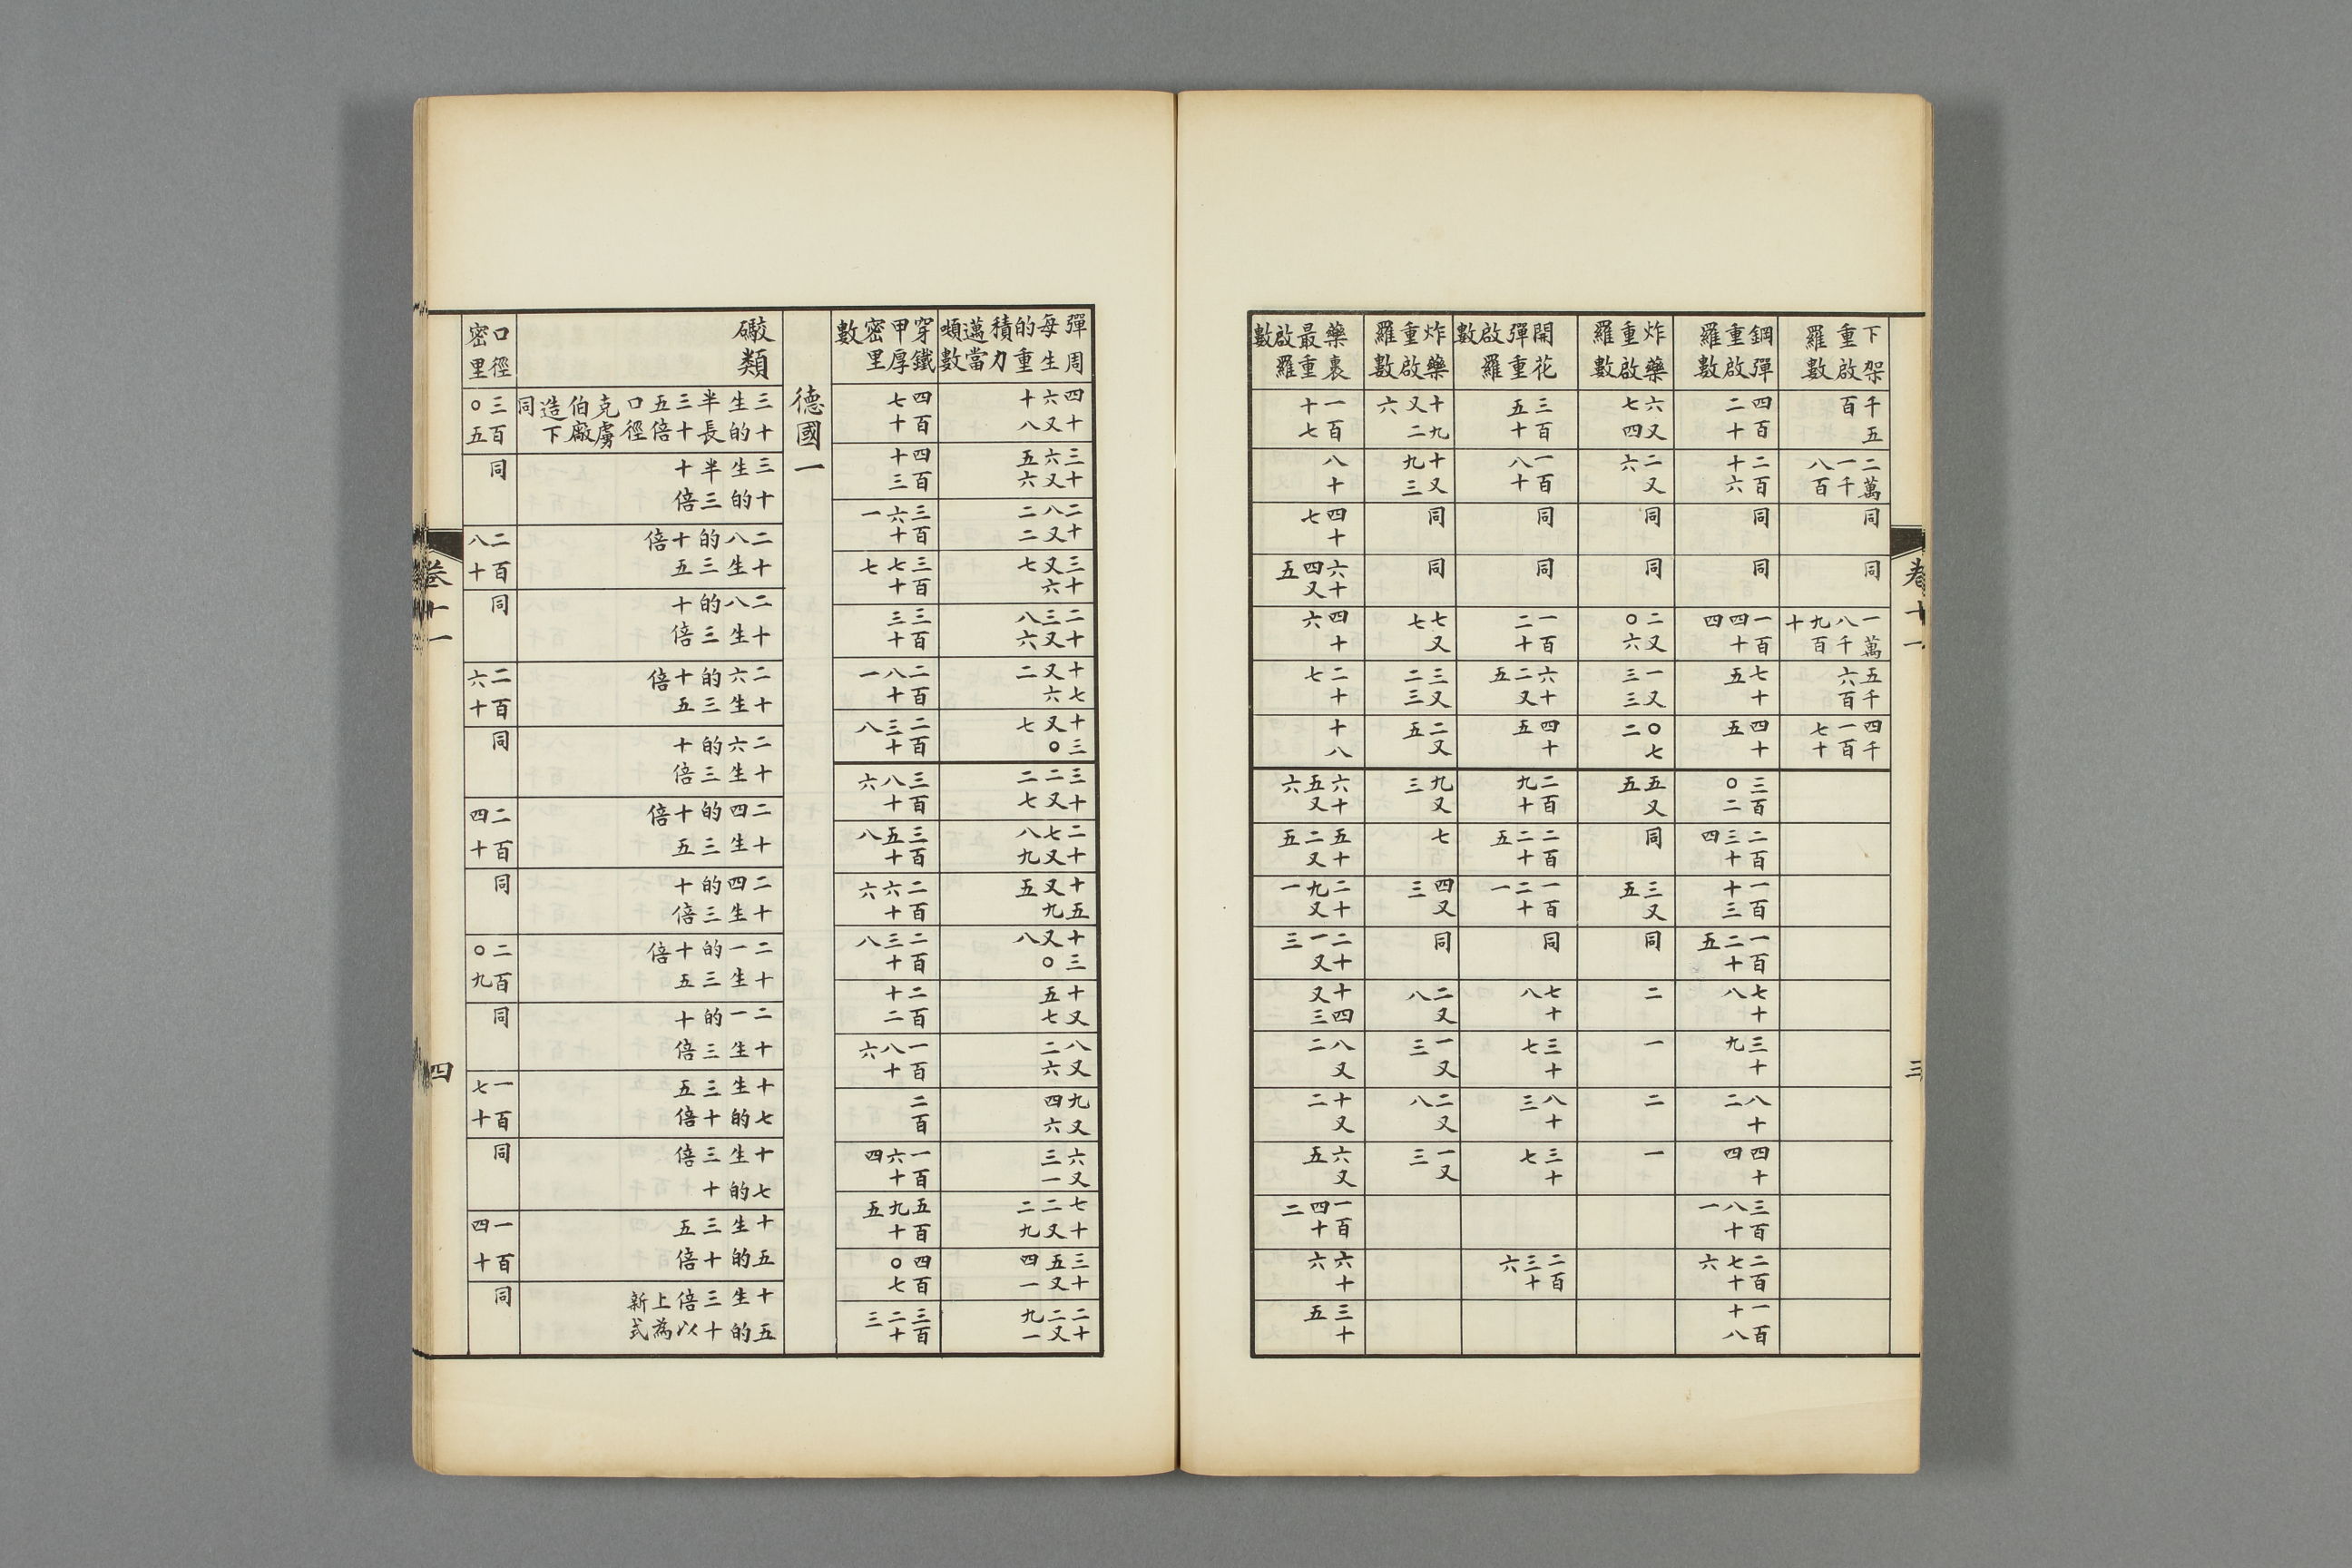 下架重啟羅數
千五百
二萬一千八百
同
同
一萬八千九百十
五千六百
四千一百七十
鋼彈重啟羅數
四百二十
二百十六
同
同
一百四十四
七十五
四十五
三百〇二
二百三十四
一百十三
一百二十五
七十八
三十九
八十二
四十四
三百八十一
二百七十六
一百十八
炸藥重啟羅數
六又七四
二又六
同
同
二又〇六
一又三三
〇七二
五又五
同
三又五
同
二
一
二
一
開花彈重啟羅數
三百五十
一百八十
同
同
一百二十
六十二又五
四十五
二百九十
二百二十五
一百二十一
同
七十八
三十七
八十三
三十七
二百三十六
炸藥重啟羅數
十九又二六
十又九三
同
同
七又七
三又二三
二又五
九又三
七
四又三
同
二又八
一又三
二又八
一又三
藥裹最重啟羅數
一百十七
八十
四十七
六十四又五
四十六
二十七
十八
六十五又六
五十二又五
二十九又一
二十一又三
十四又三
八又二
十又二
六又五
一百四十二
六十六
三十五
卷十一
三
彈周每生的重積力邁當噸數
四十六又十八
三十六又五六
二十八又二二
三十又六七
二十三又八六
十七又六二
十三又〇七
三十二又二七
二十七又八九
十五又九五
十三又〇八
十又五七
八又二六
九又四六
六又三一
七十二又二九
三十五又四一
二十二又九一
穿鐵甲厚密里數
四百七十
四百十三
三百六十一
三百七十七
三百三十
二百八十一
二百三十八
三百八十六
三百五十八
二百六十六
二百三十八
二百十二
一百八十六
二百
一百六十四
五百九十五
四百〇七
三百二十三
德國一
礮類
三十生的半長三十五倍口徑克虜伯廠造下同
三十生的半三十倍
二十八生的三十五倍
二十八生的三十倍
二十六生的三十五倍
二十六生的三十倍
二十四生的三十五倍
二十四生的三十倍
二十一生的三十五倍
二十一生的三十倍
十七生的三十五倍
十七生的三十倍
十五生的三十五倍
十五生的三十倍以上為新式
口徑密里
三百〇五
同
二百八十
同
二百六十
同
二百四十
同
二百〇九
同
一百七十
同
一百四十
同
卷十一
四